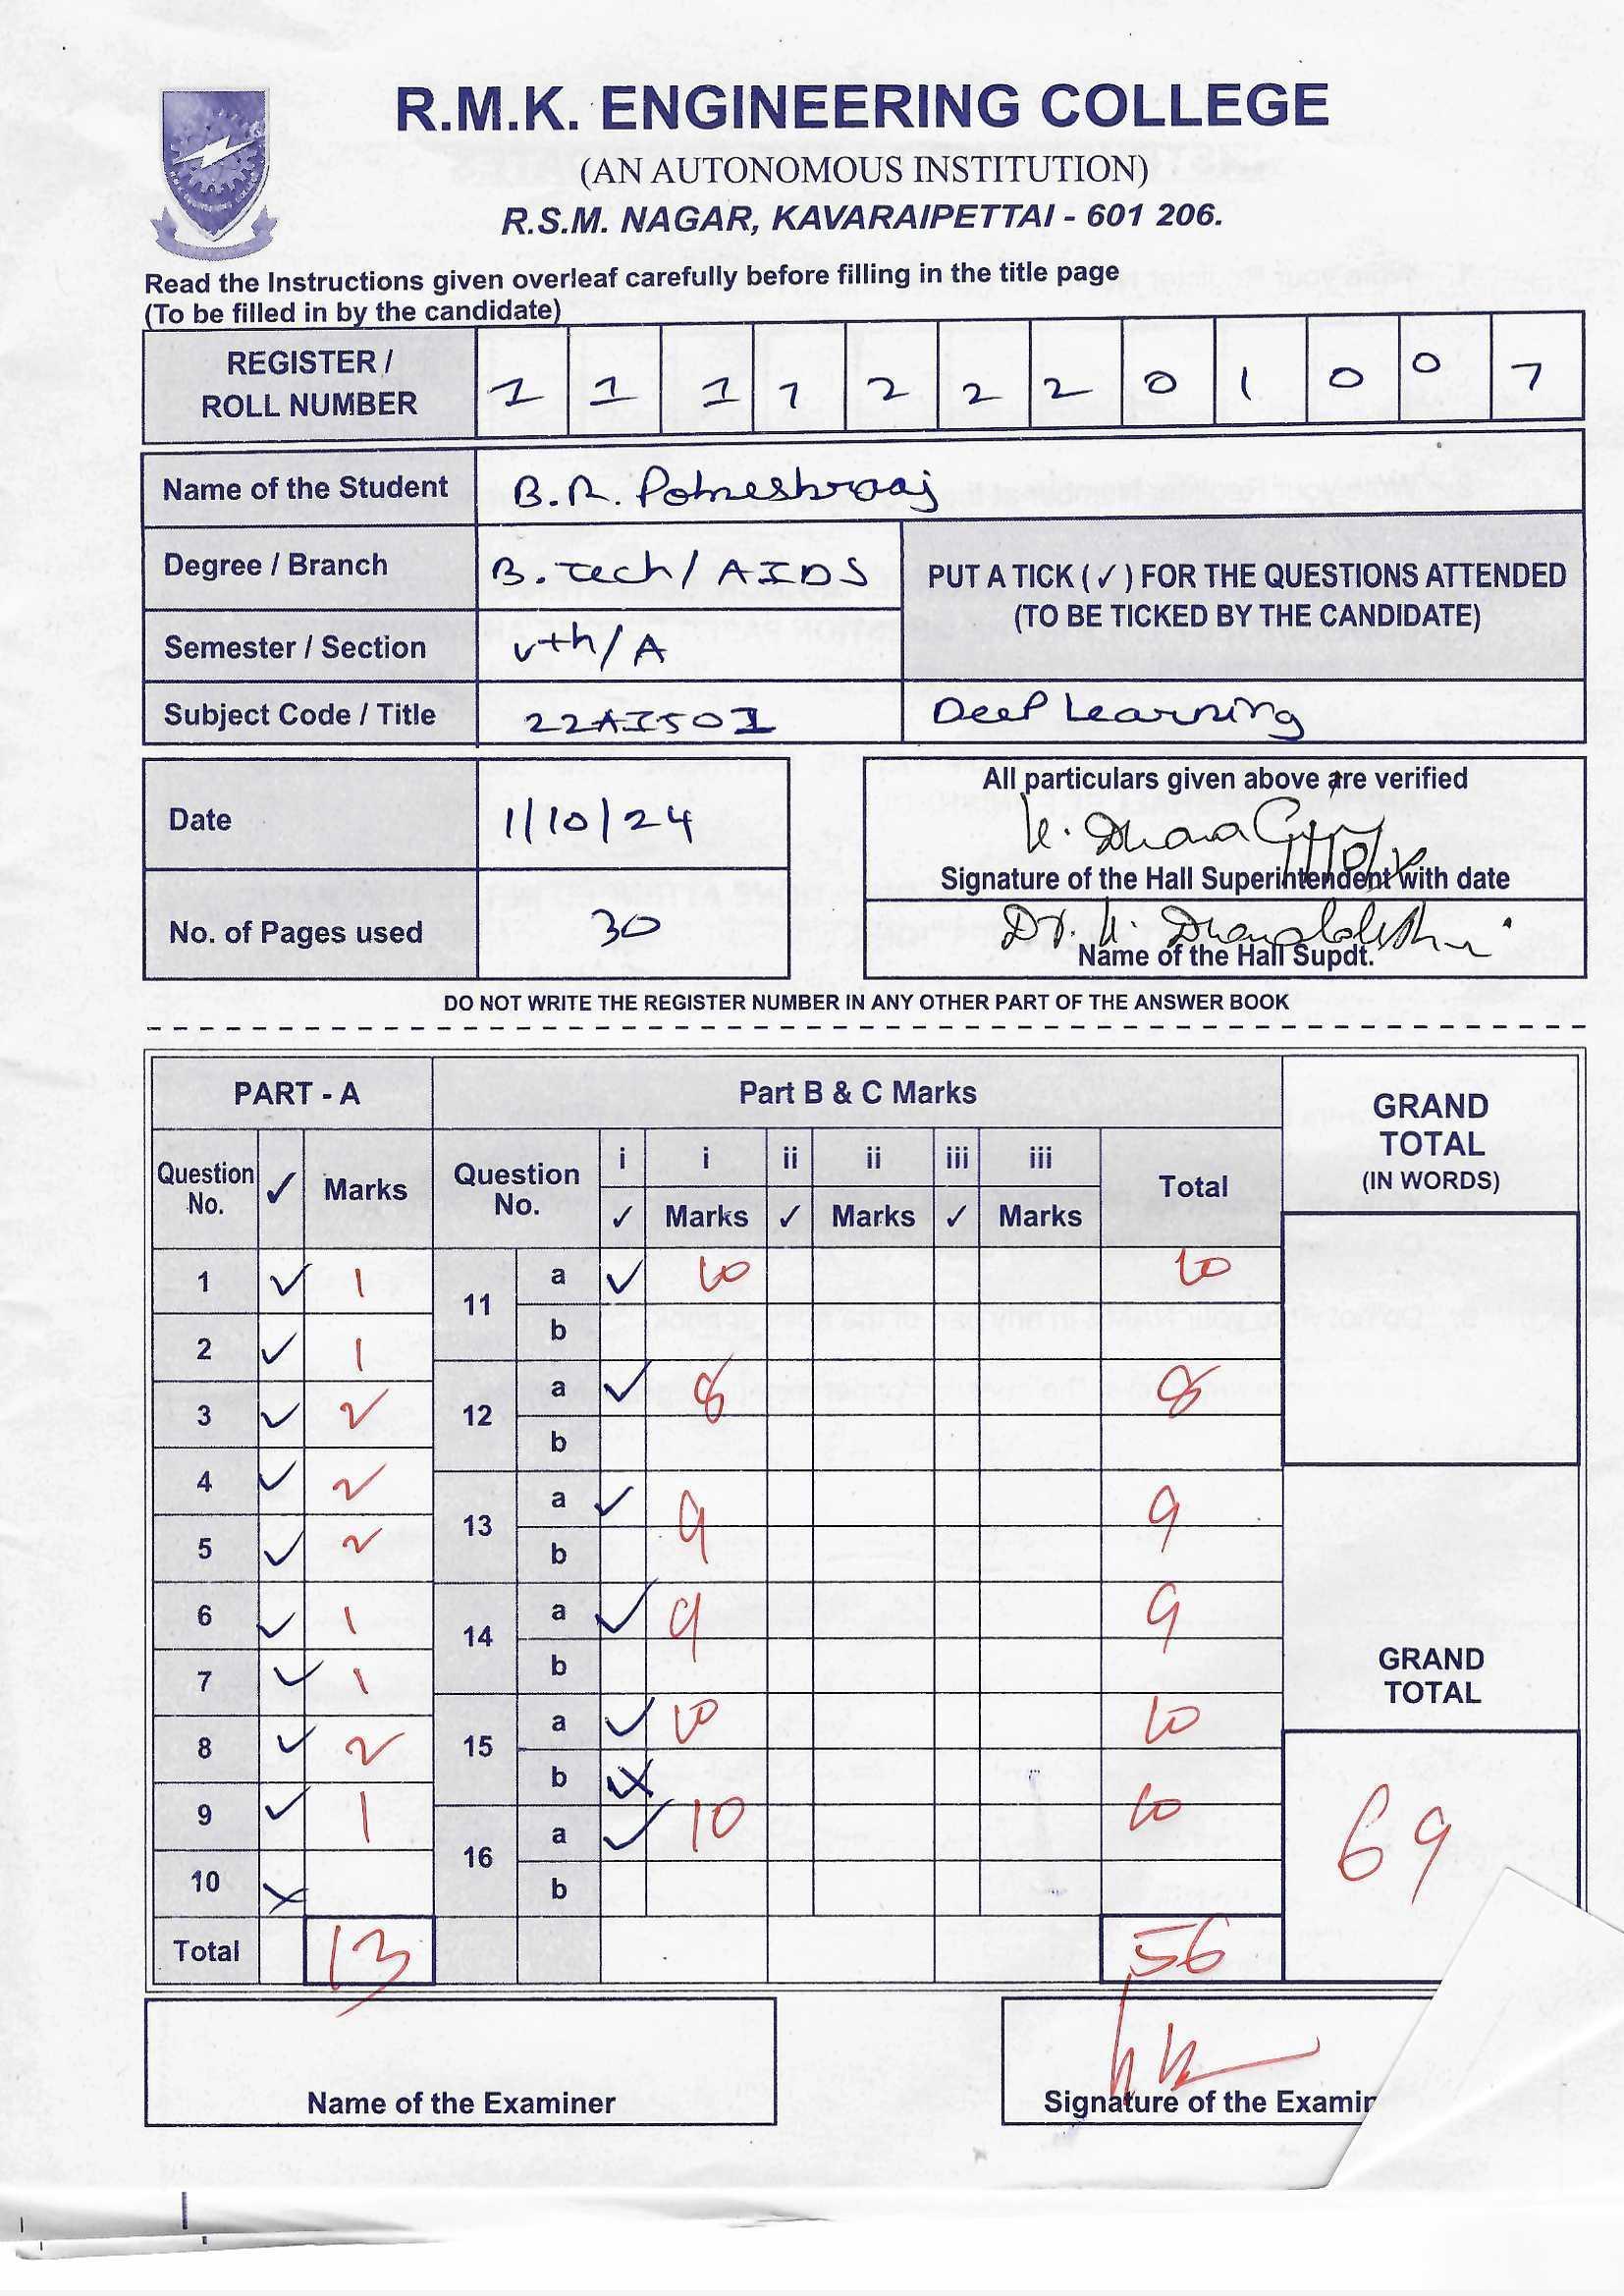 R.M.K. ENGINEERING COLLEGE
(AN AUTONOMOUS INSTITUTION)
R.S.M. NAGAR, KAVARAIPETTAI - 601 206.
Read the Instructions given overleaf carefully before filling in the title page
(To be filled in by the candidate)
REGISTER / ROLL NUMBER 1 1 1 7 2 2 2 0 1 0 0 7
Name of the Student B.R.
Degree / Branch B.Tech / AIDS
PUT A TICK ( ✓ ) FOR THE QUESTIONS ATTENDED
(TO BE TICKED BY THE CANDIDATE)
Semester / Section Vth / A
Subject Code / Title 22AI501 Deep Learning
Date 1/10/24
All particulars given above are verified
Signature of the Hall Superintendent with date
No. of Pages used 30
Dr.
Name of the Hall Supdt.
DO NOT WRITE THE REGISTER NUMBER IN ANY OTHER PART OF THE ANSWER BOOK
PART - A Part B & C Marks GRAND TOTAL (IN WORDS)
Question No. ✓ Marks Question No. i i ii ii iii iii Total
✓ Marks ✓ Marks ✓ Marks
1 ✓ 1 11 a ✓ 10 10
b
2 ✓ 1
12 a ✓ 8 8
3 ✓ 2
b
4 ✓ 2
13 a ✓ 9 9
5 ✓ 2
b
6 ✓ 1
14 a ✓ 9 9
7 ✓ 1
b
GRAND TOTAL
8 ✓ 2
15 a ✓ 10 10
b
9 ✓ 1
16 a ✓ 10 10
10 ✗
b
69
Total 13 56
Name of the Examiner
Signature of the Examin